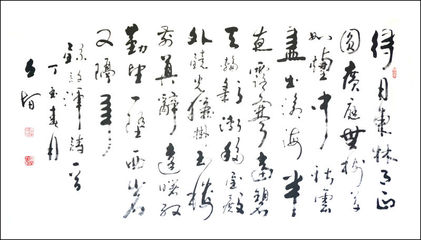 待月東林月正
圓廣庭無樹草
無煙中秋雲
盡出滄海半
夜露寒當碧
天輪彩漸移金殿
外鏡光猶掛玉樓
前莫辭達曙殷
勤望一墮西岩
又隔年
許渾詩一首
丁亥春月